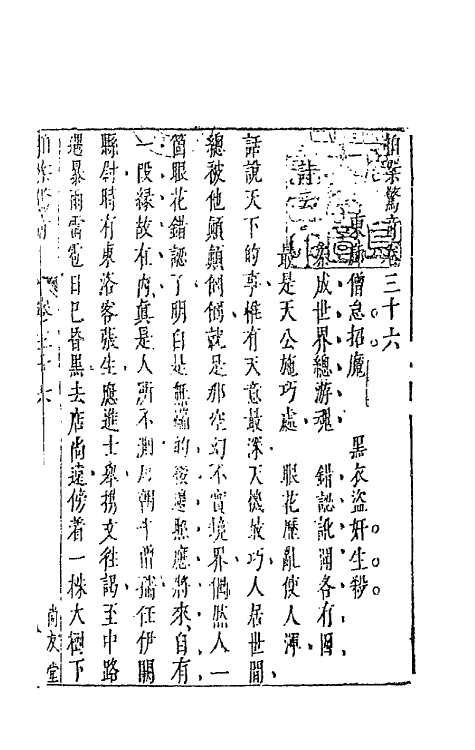 拍案驚奇卷三十六
東廊僧怠招魔 黑衣盜奸生殺
詩云
參成世界總游魂 錯認訛聞各有因
最是天公施巧處 眼花歷亂使人渾
話說天下的事惟有天意最深天機最巧人居世間
總被他顛顛倒倒就是那空幻不實境界偶然人一
箇眼花錯認了明白是無端的後邊照應將來自有
一段緣故在內真是人所不測唐朝牛僧孺任伊闕
縣尉時有東洛客張生應進士舉攜文往謁至中路
遇暴雨雷雹日已昏黑去店尚遠傍着一株大樹下
拍案驚奇 卷三十六 尚友堂